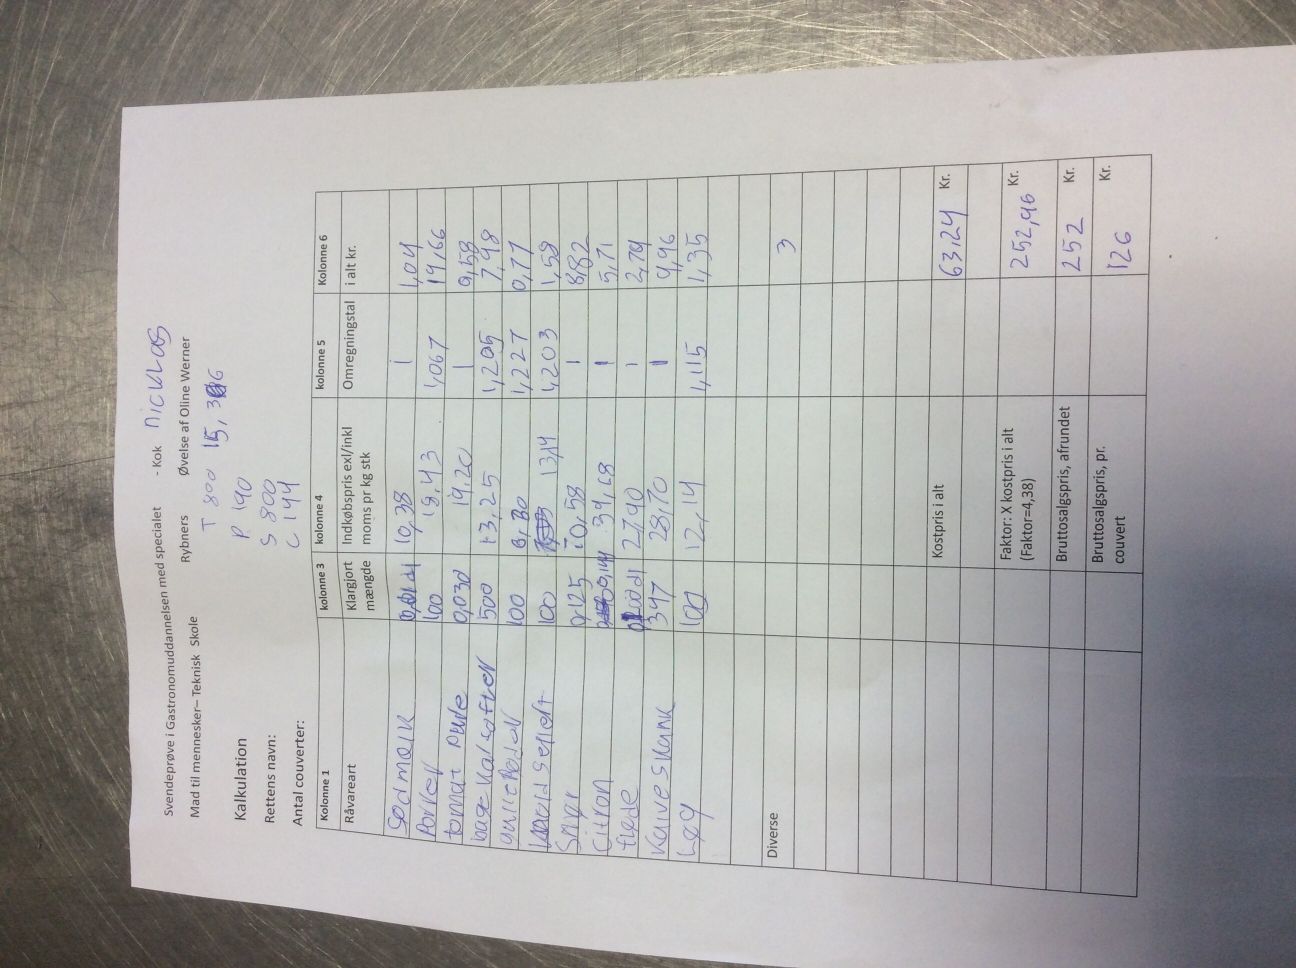 Svendeprøve i Gastronomuddannelsen med specialet - Kok nicklas
Mad til mennesker– Teknisk Skole Rybners Øvelse af Oline Werner
T 800 15,
Kalkulation P 190
Rettens navn: S 800
Antal couverter: C 144
Kolonne 1 kolonne 3 kolonne 4 kolonne 5 Kolonne 6
Råvareart Klargjort mængde Indkøbspris exl/inkl moms pr kg stk Omregningstal i alt kr.
sødmælk 10,38 1 1,04
Porrer 100 18,43 1,067 19,66
tomat pure 0,030 19,20 1 0,58
bage kartofler 500 13,25 1,205 7,98
gulerødder 100 6,30 1,227 0,77
knoldselleri 100 13,14 1,203 1,58
Smør 0,125 70,58 1 8,82
Citron 1 5,71
fløde 27,90 1 2,79
kalveskank 347 28,70 1 9,96
Løg 100 12,14 1,115 1,35
Diverse 3
Kostpris i alt 63,24 Kr.
Faktor: X kostpris i alt
(Faktor=4,38) 252,96 Kr.
Bruttosalgspris, afrundet 252 Kr.
Bruttosalgspris, pr.
couvert 126 Kr.